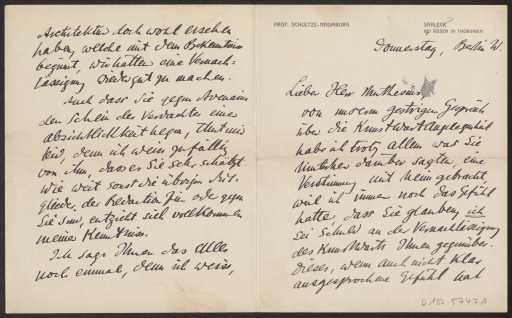 PROF. SCHULTZE-NAUMBURG
SAALECK
BEI KÖSEN IN THÜRINGEN
Donnerstag, Berlin W.
Lieber Herr Muthesius
von unserem gestrigen Gespräch
über die Kunstwart Angelegenheit
habe ich trotz allem was Sie
darüber sagten, eine
Verstimmung mit heim gebracht
weil ich immer noch das Gefühl
hatte, dass Sie glauben, ich
sei Schuld an der Vernachlässigung
des Kunstwarts Ihnen gegenüber.
Dieses, wenn auch nicht klar
ausgesprochene Gefühl hat
Architekten doch wohl ersehen
haben, welche mit dem Bekenntnis
beginnt, wir hätten eine Vernach-
lässigung wieder gut zu machen.
Auch dass Sie gegen Avenarius
den Schein des Verdachtes einer
Absichtlichkeit hegen, thut mir
leid, denn ich weiss zufällig
von ihm, dass er Sie sehr schätzt.
Wie weit sonst die übrigen Mit-
glieder der Redaktion für oder gegen
Sie sind, entzieht sich vollkommen
meiner Kenntniss.
Ich sage Ihnen das Alles
noch einmal, denn ich weiss,